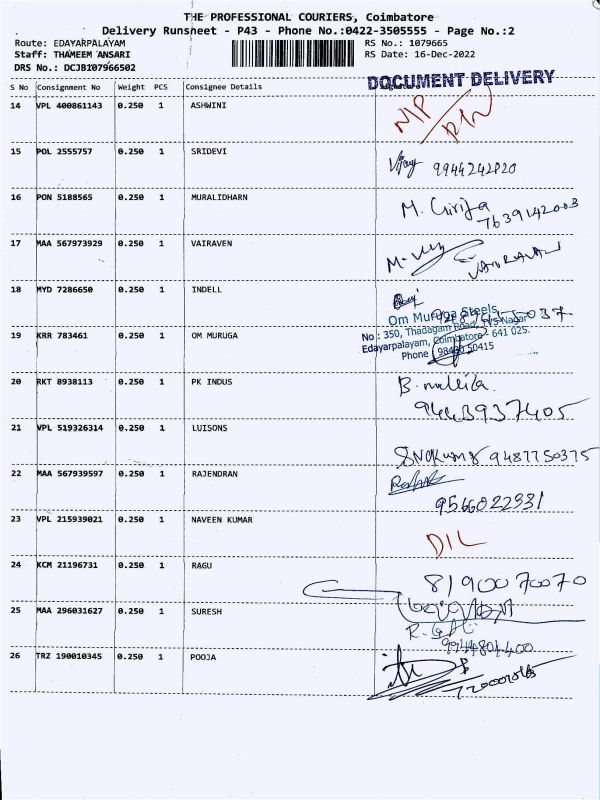 THE PROFESSIONAL COURIERS, Coimbatore
Delivery Runsheet - P43 - Phone No.:0422-3505555 - Page No.:2
Route: EDAYARPALAYAM RS No.: 1079665
Staff: THAMEEM ANSARI RS Date: 16-Dec-2022
DRS No.: DCJB107966502
DOCUMENT DELIVERY
S No Consignment No Weight PCS Consignee Details
14 VPL 400861143 0.250 1 ASHWINI
15 POL 2555757 0.250 1 SRIDEVI
Vijay 9944242820
16 PON 5188565 0.250 1 MURALIDHARN
M. Girija
7639142003
17 MAA 567973929 0.250 1 VAIRAVEN
VAIRAVAN
18 MYD 7286650 0.250 1 INDELL
Om Muruga Steels
No : 350, Thadagam Road, TVS Nagar
Edayarpalayam, Coimbatore - 641 025.
Phone : 50415
19 KRR 783461 0.250 1 OM MURUGA
20 RKT 8938113 0.250 1 PK INDUS
9443937405
21 VPL 519326314 0.250 1 LUISONS
9487750375
22 MAA 567939597 0.250 1 RAJENDRAN
9566022331
23 VPL 215939021 0.250 1 NAVEEN KUMAR
D/L
24 KCM 21196731 0.250 1 RAGU
8190070070
25 MAA 296031627 0.250 1 SURESH
9944804400
26 TRZ 190010345 0.250 1 POOJA